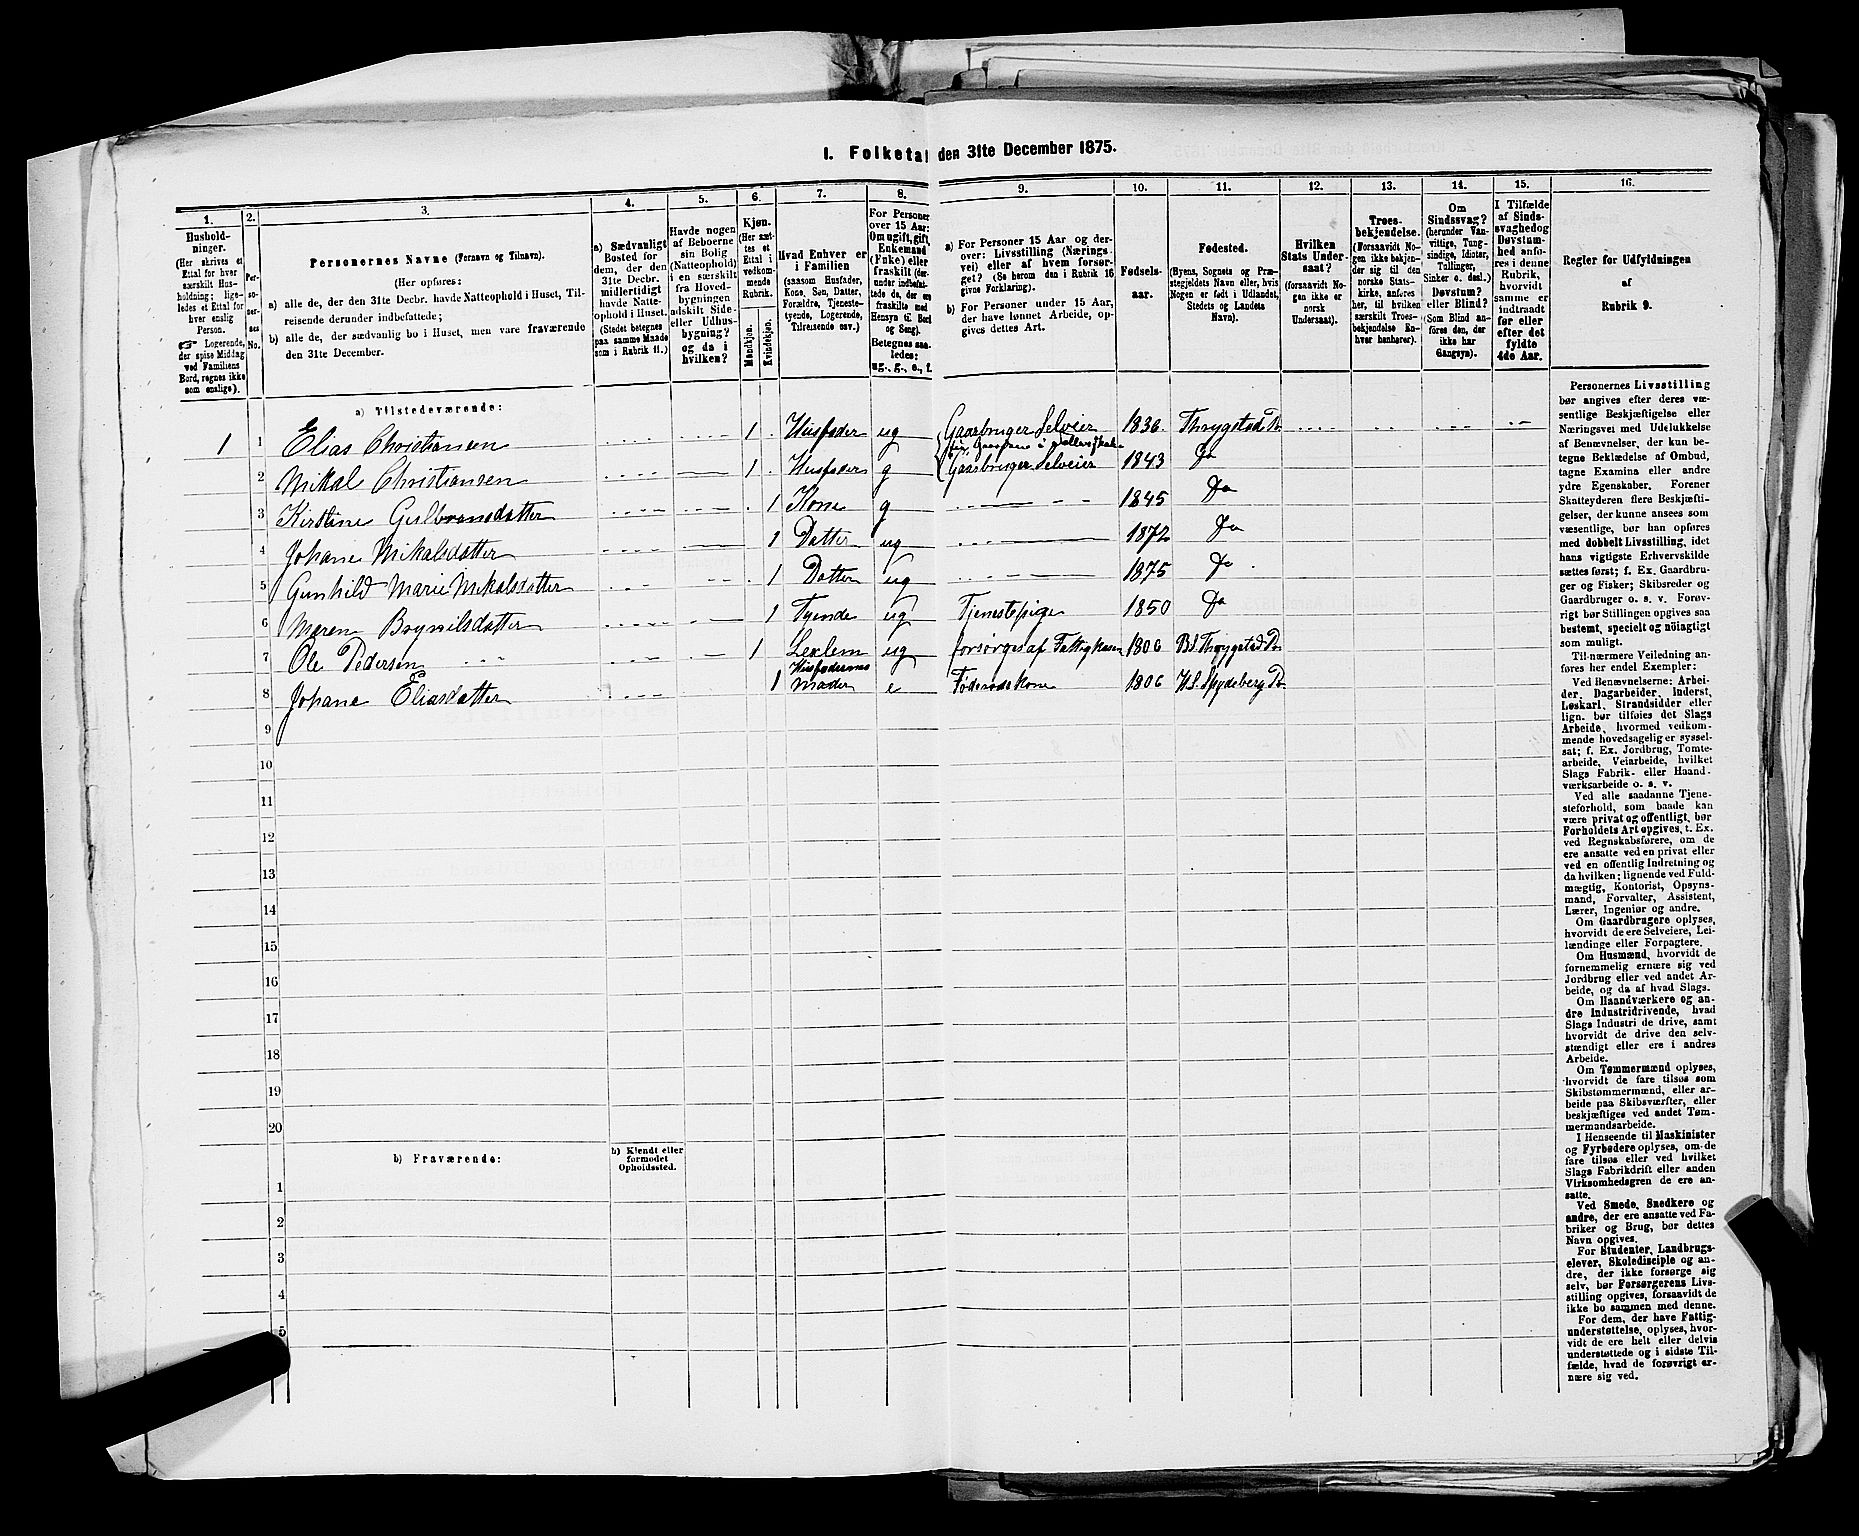 I. Folketal den 31te December 1875.
1. 2. 3. 4. 5. 6. 7. 8. 9. 10. 11. 12. 13. 14. 15. 16.
Hushold-
ninger.
(Her skrives et
Ettal for hver
særskilt Hus-
holdning; lige-
ledes et Ettal for
hver enslig
Person.
☞ Logerende,
der spise Middag
ved Familiens
Bord, regnes ikke
som enslige).
Per-
so-
ner-
nes
No.
Personernes Navne (Fornavn og Tilnavn).
(Her opføres:
a) alle de, der den 31te Decbr. havde Natteophold i Huset, Til-
reisende derunder indbefattede;
b) alle de, der sædvanlig bo i Huset, men vare fraværende
den 31te December.
a) Sædvanligt
Bosted for
dem, der den
31te Decbr.
midlertidigt
havde Natte-
ophold i Huset.
(Stedet betegnes
paa samme Maade
som i Rubrik 11.)
Havde nogen
af Beboerne
sin Bolig
(Natteophold)
i en særskilt
fra Hoved-
bygningen
adskilt Side-
eller Udhus-
bygning?
og da i
hvilken?
Kjøn.
(Her sæt-
tes et
Ettal i
vedkom-
mende
Rubrik.
Mandkjøn.
Kvindekjøn.
Hvad Enhver er
i Familien
(saasom Husfader,
Kone, Søn, Datter,
Forældre, Tjeneste-
tyende, Logerende,
Tilreisende osv.)
For Personer
over 15 Aar:
Om ugift, gift,
Enkemand
(Enke) eller
fraskilt (der-
under indbefat-
tede de, der ere
fraskilte med
Hensyn til Bord
og Seng).
Betegnes saa-
ledes:
ug., g., e., f.
a) For Personer 15 Aar og der-
over: Livsstilling (Nærings-
vei) eller af hvem forsør-
get? (Se herom den i Rubrik 16
givne Forklaring).
b) For Personer under 15 Aar,
der have lønnet Arbeide, op-
gives dettes Art.
Fødsels-
aar.
Fødested.
(Byens, Sognets og Præ-
stegjeldets Navn, eller, hvis
Nogen er født i Udlandet,
Stedets og Landets
Navn).
Hvilken
Stats Under-
saat?
(forsaavidt No-
gen ikke er
norsk
Undersaat).
Troes-
bekjendelse.
(Forsaavidt No-
gen ikke bekjen-
der sig til den
norske Stats-
kirke, anføres
her, til hvilken
særskilt Troes-
bekjendelse En-
hver henhører).
Om
Sindssvag?
(herunder Van-
vittige, Tung-
sindige, Idioter,
Tullinger,
Sinker o. desl.)
Døvstum?
eller Blind?
(Som Blind an-
føres den, der
ikke har
Gangsyn).
I Tilfælde
af Sinds-
svaghed og
Døvstum-
hed anfø-
res i denne
Rubrik,
hvorvidt
samme er
indtraadt
før eller
efter det
fyldte
4de Aar.
Regler for Udfyldningen
af
Rubrik 9.
a) Tilstedeværende:
1 1 Elias Christiansen 1 Husfader ug Gaardbruger Selveier 1836 Thrygstad Pr
2 Mikal Christiansen 1 Husfader g Gaardbruger Selveier 1843 Do
3 Kirstine Gulbransdatter 1 Kone g 1845 Do
4 Johane Mikalsdatter 1 Datter ug 1872 Do
5 Gunhild Marie Mikalsdatter 1 Datter ug 1875 Do
6 Maren Brynilsdatter 1 Tyende ug Tjenestepige 1850 Do
7 Ole Pedersen 1 Lexlem ug forsørges af Fattigkasen 1806 Thrygstad Pr
8 Johane Eliasdatter 1 Husfaderens Moder e Føderaadskone 1806 Spydeberg Pr
9
10
11
12
13
14
15
16
17
18
19
20
b) Fraværende:
b) Kjendt eller
formodet
Opholdssted.
1
2
3
4
5
Personernes Livsstilling
bør angives efter deres væ-
sentlige Beskjæftigelse eller
Næringsvei med Udelukkelse
af Benævnelser, der kun be-
tegne Beklædelse af Ombud,
tagne Examina eller andre
ydre Egenskaber. Forener
Skatteyderen flere Beskjæfti-
gelser, der kunne ansees som
væsentlige, bør han opføres
med dobbelt Livsstilling, idet
hans vigtigste Erhvervskilde
sættes først; f. Ex. Gaardbru-
ger og Fisker; Skibsreder og
Gaardbruger o. s. v. Forøv-
rigt bør Stillingen opgives saa
bestemt, specielt og nöiagtigt
som muligt.
Til nærmere Veiledning an-
føres her endel Exempler:
Ved Benævnelserne: Arbei-
der, Dagarbeider, Inderst,
Løskarl, Strandsidder eller
lign. bør tilføies det Slags
Arbeide, hvormed vedkom-
mende hovedsagelig er syssel-
sat; f. Ex. Jordbrug, Tomte-
arbeide, Veiarbeide, hvilket
Slags Fabrik- eller Haand-
værksarbeide o. s. v.
Ved alle saadanne Tjene-
steforhold, som baade kan
være privat og offentligt, bør
Forholdets Art opgives, t. Ex.
ved Regnskabsførere, om de
ere ansatte ved en privat eller
ved en offentlig Indretning og
da hvilken; lignende ved Fuld-
mægtig, Kontorist, Opsyns-
mand, Forvalter, Assistent,
Lærer, Ingeniør og andre.
Om Gaardbrugere oplyses,
hvorvidt de ere Selveiere, Lei-
lændinge eller Forpagtere.
Om Husmænd, hvorvidt de
fornemmelig ernære sig ved
Jordbrug eller ved andet Ar-
beide, og da af hvad Slags.
Om Haandværkere og an-
dre Industridrivende, hvad
Slags Industri de drive, samt
hvorvidt de drive den selv-
stændigt eller ere i andres
Arbeide.
Om Tømmermænd oplyses,
hvorvidt de fare tilsøs som
Skibstømmermænd, eller ar-
beide paa Skibsværfter, eller
beskjæftiges ved andet Tøm-
mermandsarbeide.
I Henseende til Maskinister
og Fyrbødere oplyses, om de
fare tilsøs eller ved hvilket
Slags Fabrikdrift eller anden
Virksomhedsgren de ere an-
satte.
Ved Smede, Snedkere og
andre, der ere ansatte ved Fa-
briker og Brug, bør dettes
Navn opgives.
For Studenter, Landbrugs-
elever, Skoledisciple og an-
dre, der ikke forsørge sig
selv, bør Forsørgerens Livs-
stilling opgives, forsaavidt de
ikke bo sammen med denne.
For dem, der have Fattig-
understøttelse, oplyses, hvor-
vidt de ere helt eller delvis
understøttede og i sidste Til-
fælde, hvad de forøvrigt er-
nære sig ved.